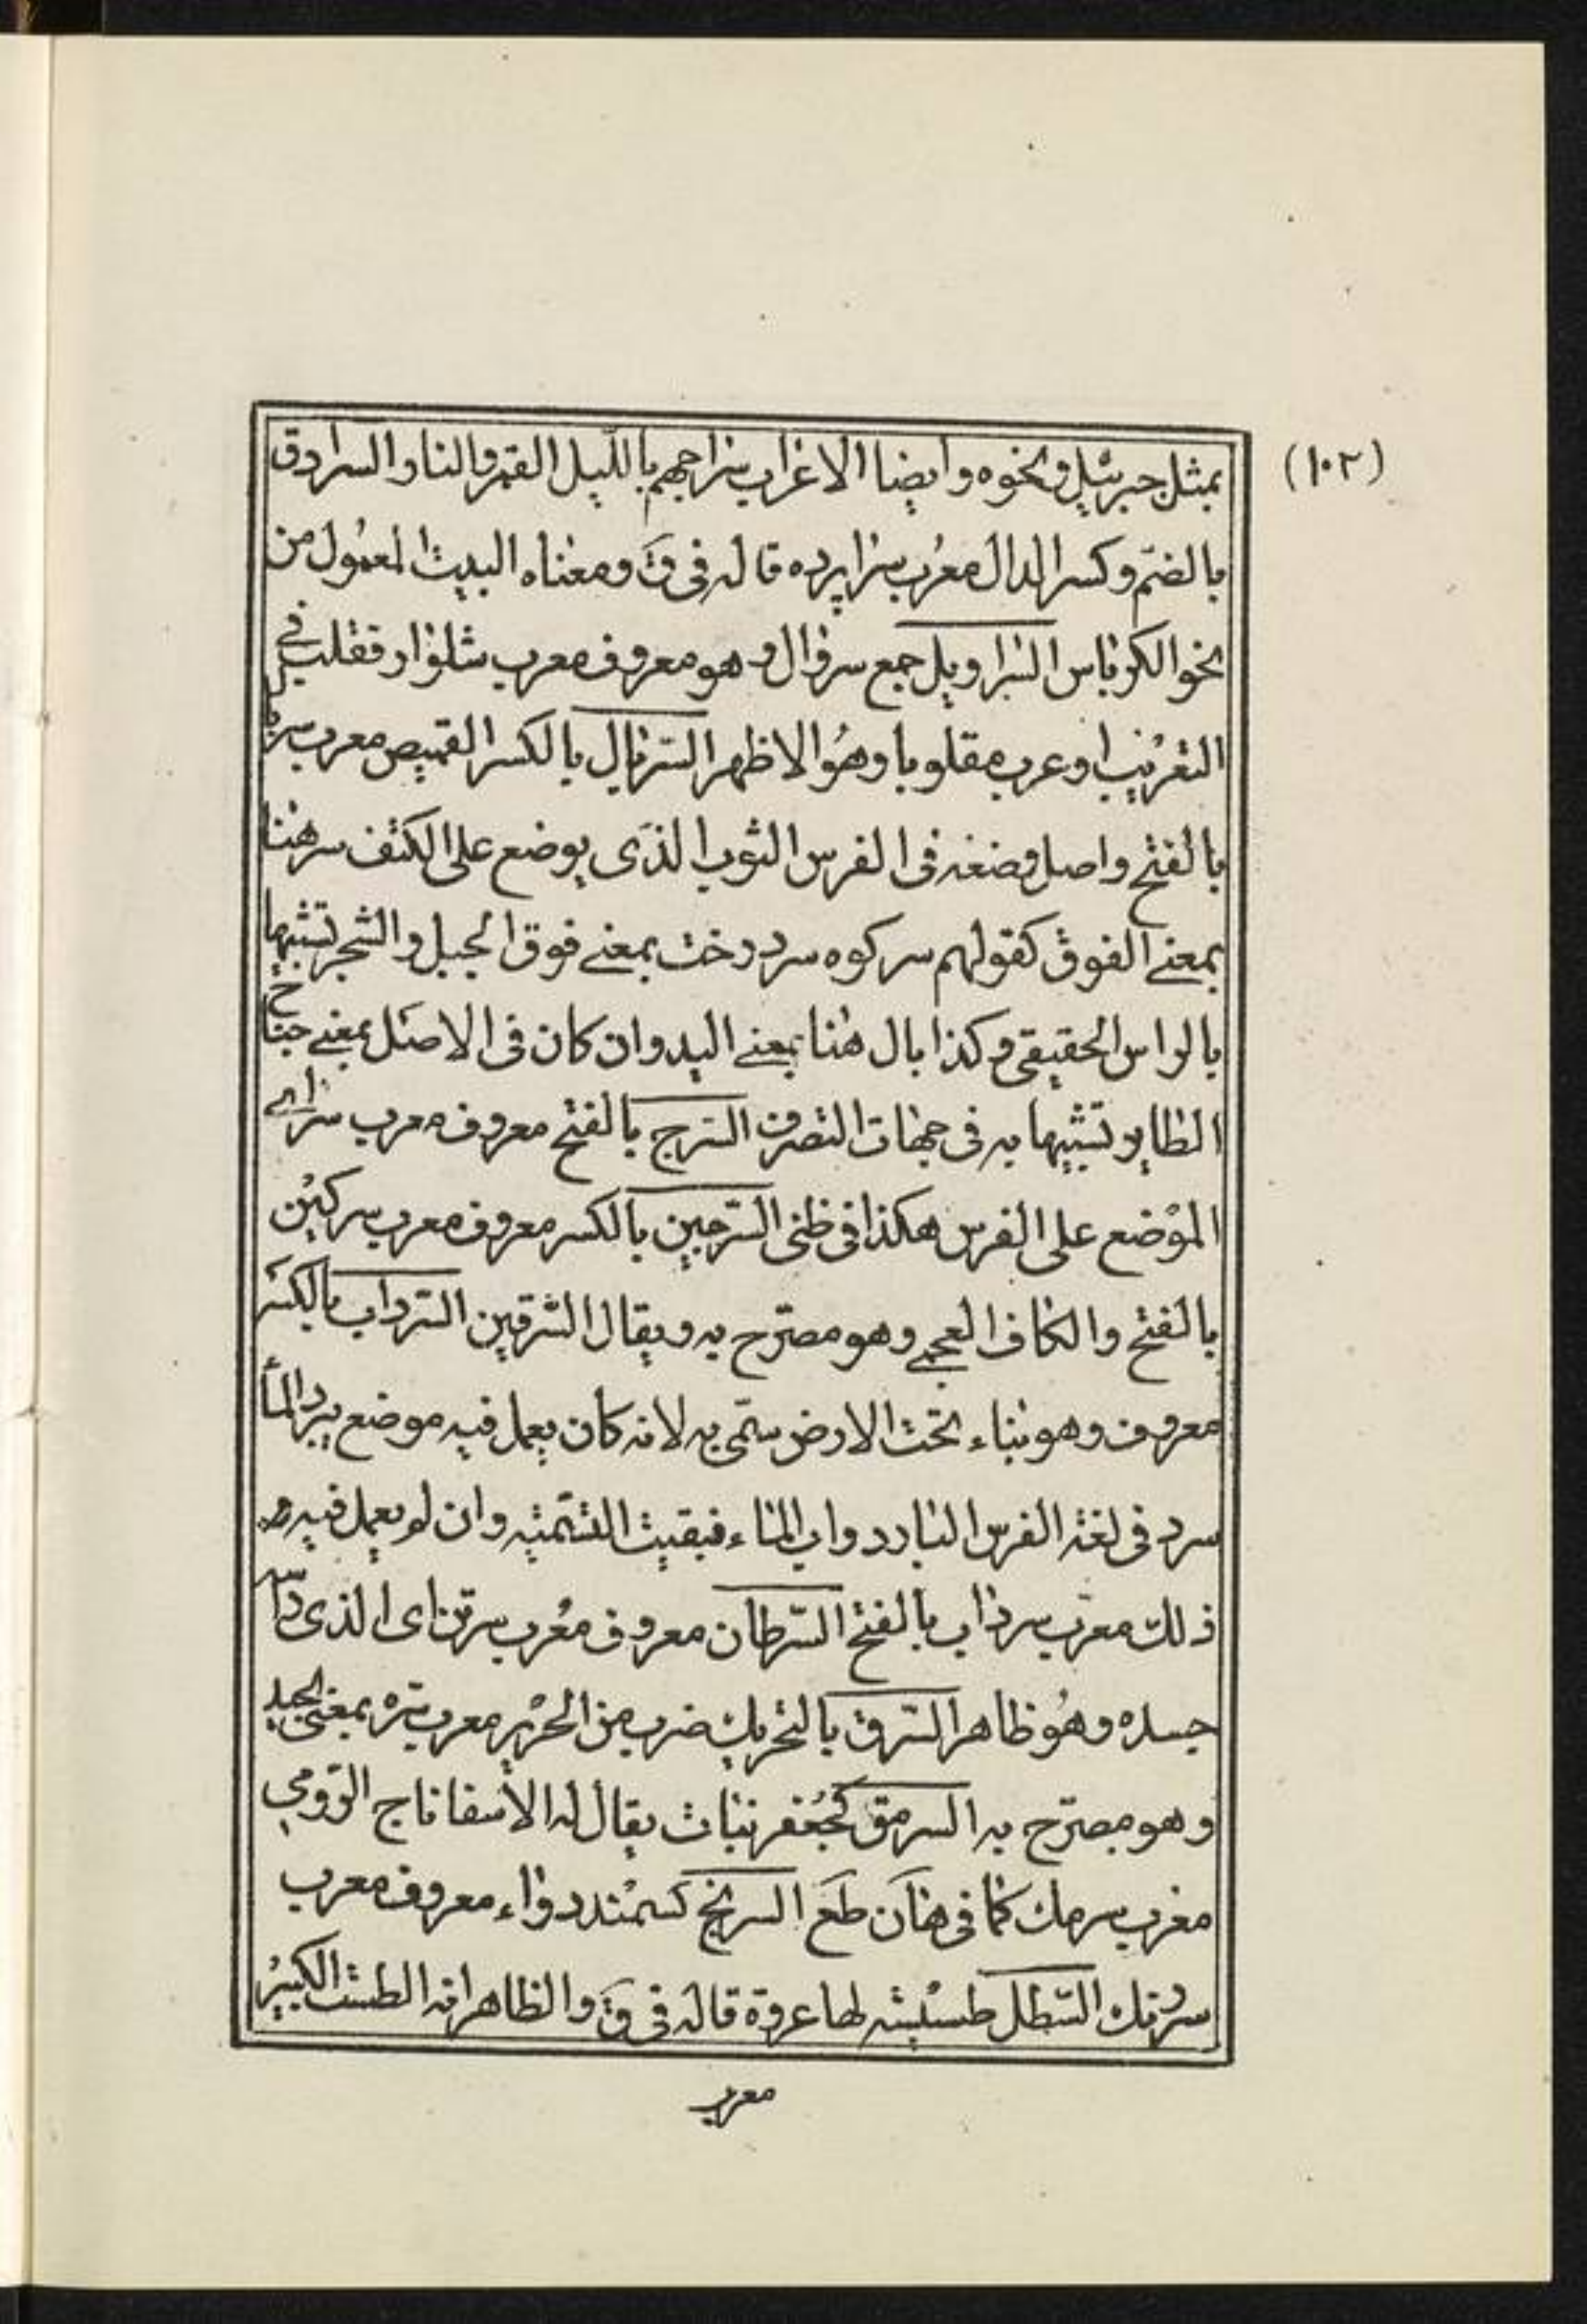 (١٠٢)
بمثل جبرئيل ونحوه وايضا الاغراب سراجهم بالليل القمر والنار السرادق
بالضم وكسر الدال معرب سراپرده قاله فى ق ومعناه البيت المعمول من
نحو الكرباس السراويل جمع سروال وهو معروف معرب شلوار فقلب فى
التعريب او عرب مقلوبا وهو الاظهر السربال بالكسر القميص معرب سربال
بالفتح واصل وضعه فى الفرس الثوب الذى يوضع على الكتف سر هنا
بمعنى الفوق كقولهم سر كوه سر درخت بمعنى فوق الجبل والشجر تشبيها
بالراس الحقيقى وكذا بال هنا بمعنى اليد وان كان فى الاصل بمعنى جناح
الطاير تشبيها به فى جهات التصرف السرج بالفتح معروف معرب سراى
الموضع على الفرس هكذا فى ظنى السرجين بالكسر معروف معرب سركين
بالفتح والكاف العجمى وهو مصرح به ويقال السرقين السرداب بالكسر
معروف وهو بناء تحت الارض سمى به لانه كان يعمل فيه موضع يبرد الماء
سرد فى لغة الفرس البارد واب الماء فبقيت التسمية وان لم يعمل فيه
ذلك معرب سرداب بالفتح السرطان معروف معرب سرتن اى الذى راسه
جسده وهو ظاهر السرق بالتحريك ضرب من الحرير معرب سره بمعنى الجيد
وهو مصرح به السرمق كجعفر نبات يقال له الاسفاناج الرومى
معرب سرمك كما فى هان طع السرنج كسمند دواء معروف معرب
سرنك السطل طسيسة لها عروة قاله فى ق والظاهر انه الطست الكبير
معرب